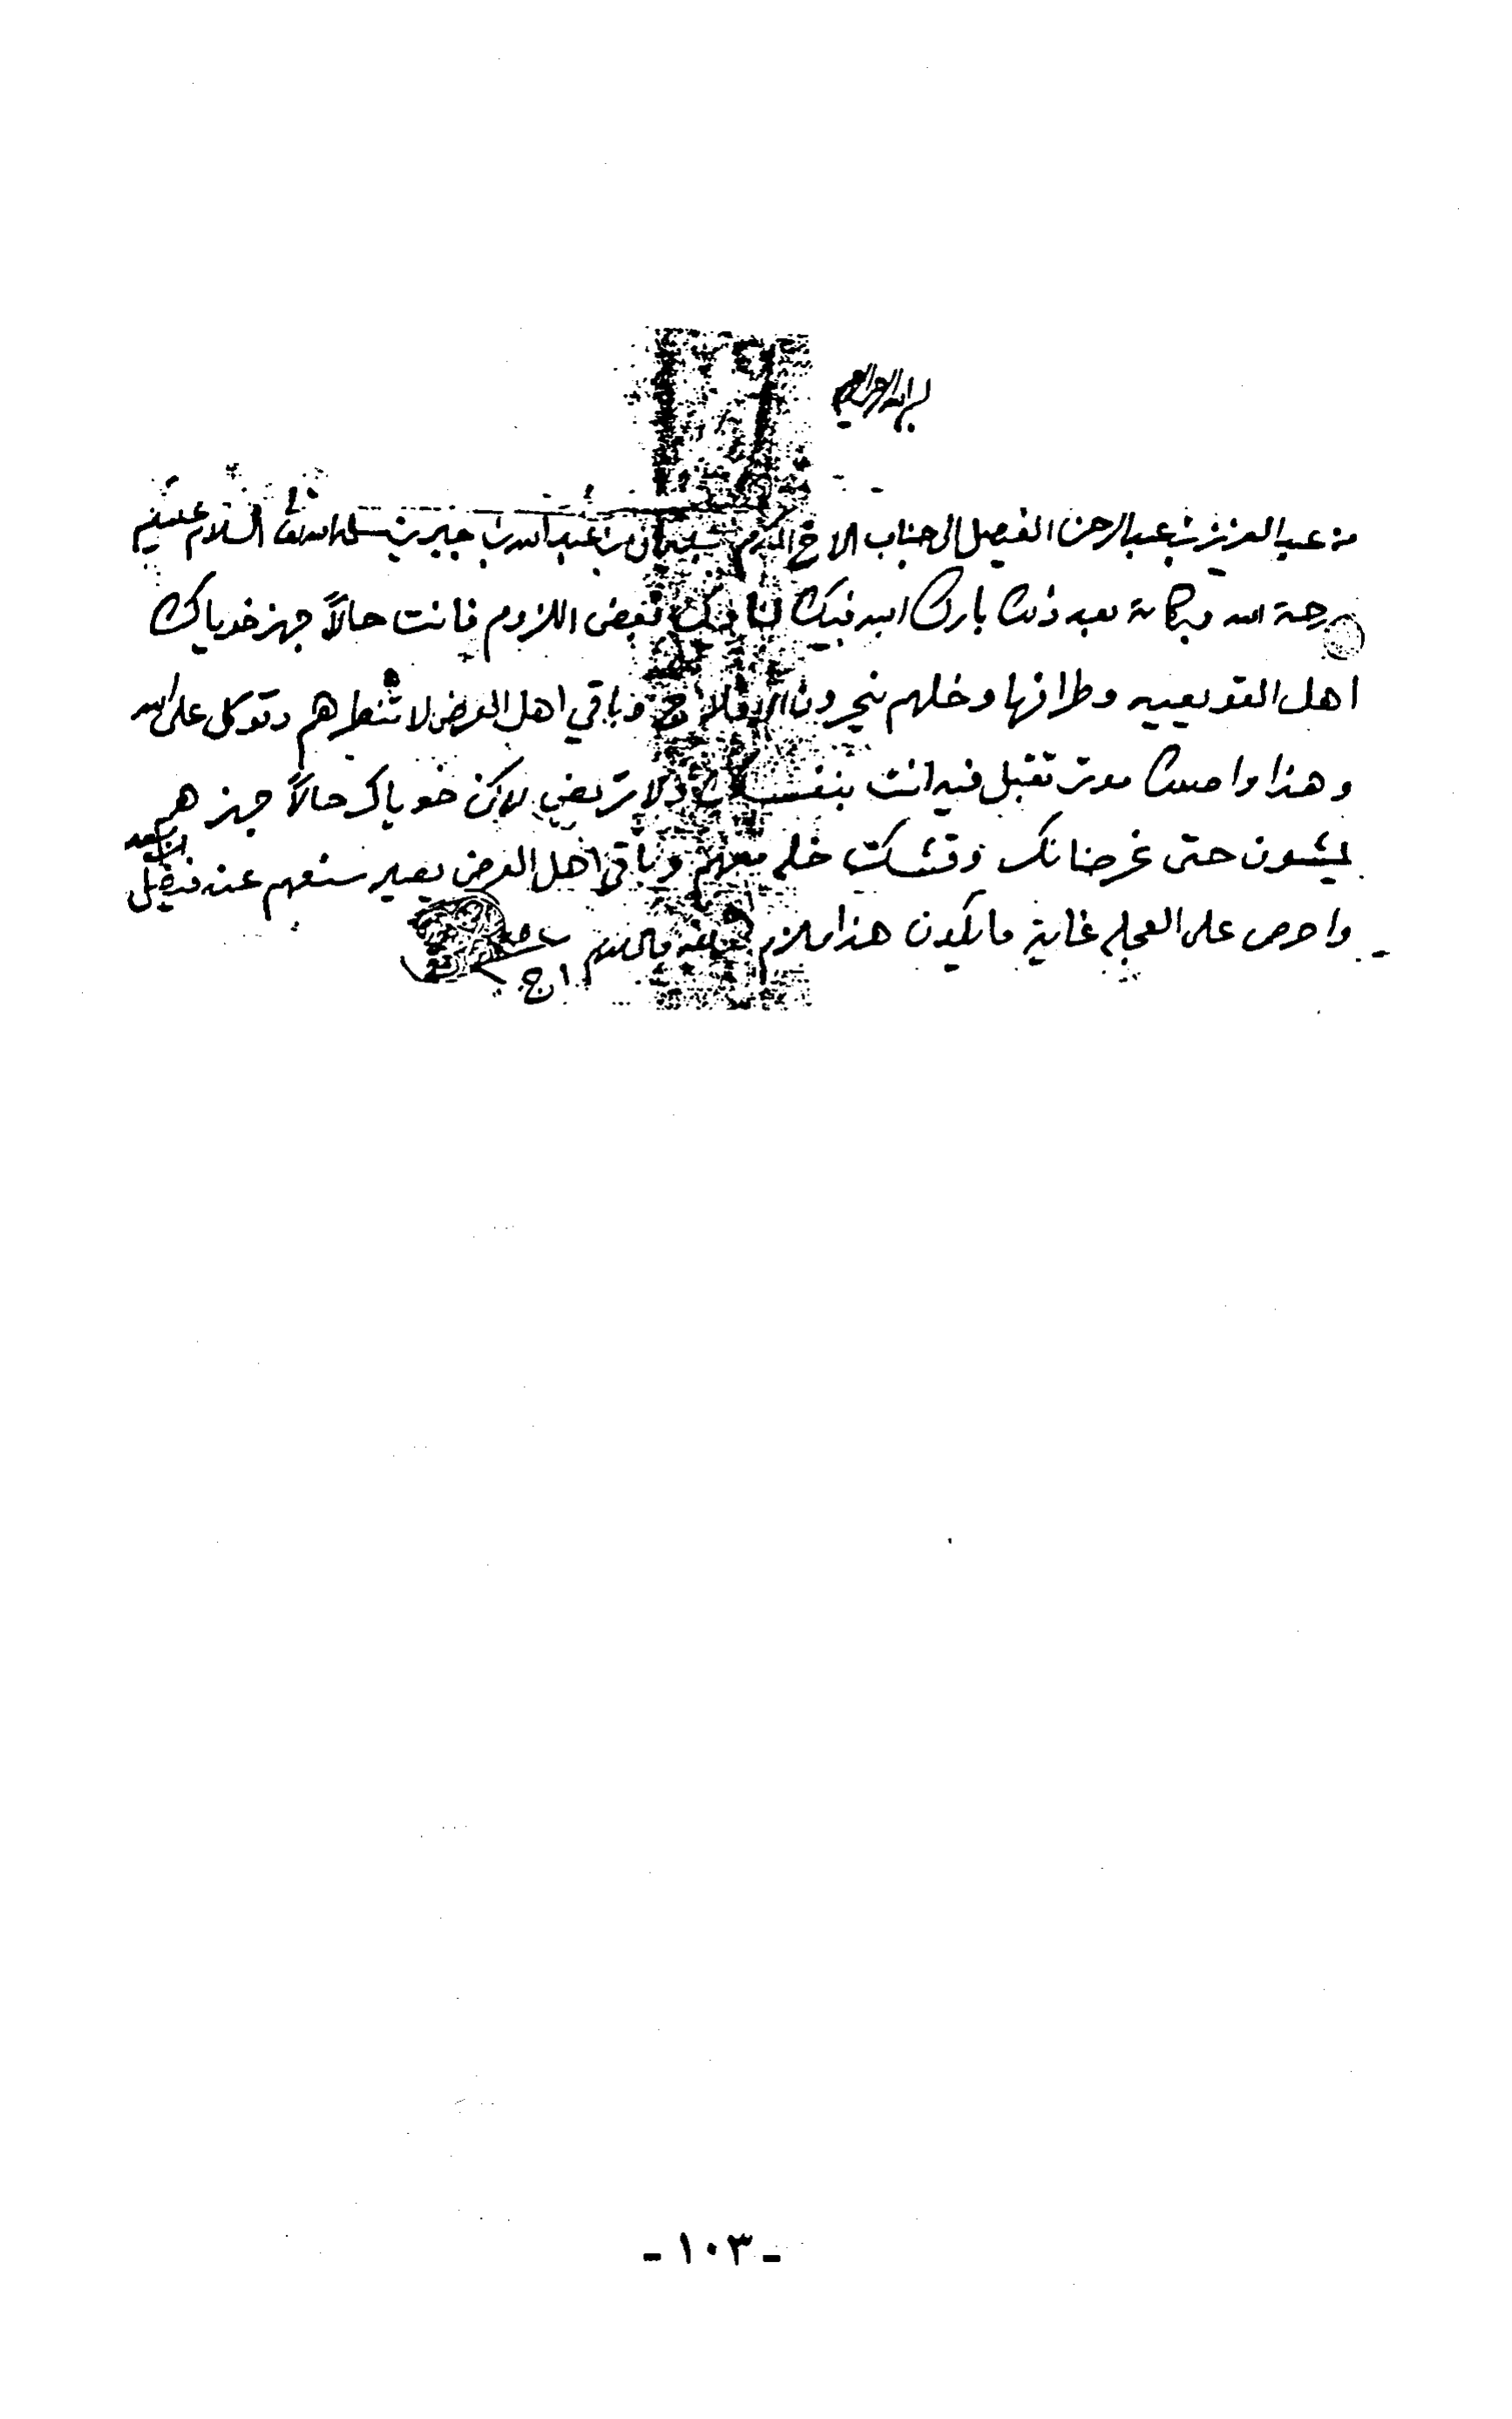 بسم الله الرحمن الرحيم
من عبد العزيز بن عبد الرحمن الفيصل الى جناب الاخ المكرم سليمان بن عبد الله بن جبرين سلمه الله تعالى السلام عليكم
ورحمة الله وبركاته بعد ذلك بارك الله فيك لنا بعض اللزوم فانت حالاً جهز خوياك
اهل القويعيه وطرافها وخلهم ينحرون الافلاج وباقي اهل العرض لا تنطرهم وتوكل على الله
وهذا تقبل فيه انت بنفسك ولا تربض لاكن خوياك حالاً جهز هم
يمشون حتى غرضانك وقشك خله معهم وباقي اهل العرض يصير سنعهم عند فيصل
ابن سعد
واحرص على العجله غاية ما يكون هذا ملزم والسلام
١ ج
- ١٠٣ -